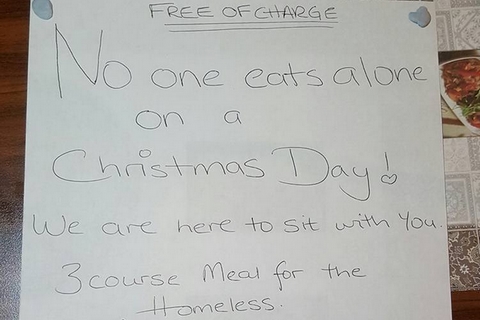 FREE OF CHARGE
No one eats alone
on a
Christmas Day!
We are here to sit with you.
3 course Meal for the
Homeless.